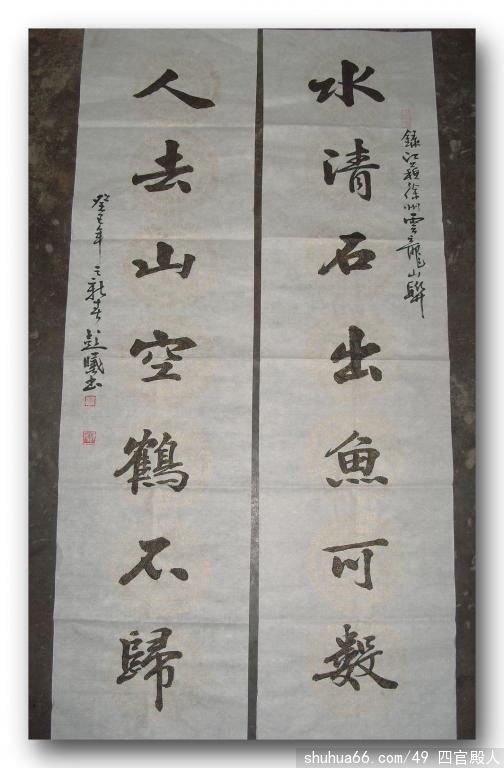 錄江蘇徐州雲龍山聯
水清石出魚可數
人去山空鶴不歸
癸巳年之新春
書
shuhua66.com/49 四官殿人